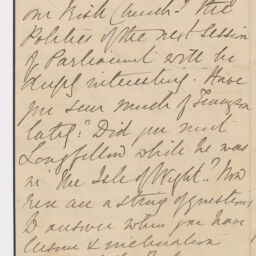 our Irish Church? The
Politics of the next Session
of Parliament will be
deeply interesting. Have
you seen much of Tennyson
lately? Did you meet
Longfellow while he was
in the Isle of Wight? Now
here are a string of questions
to answer when you have
leisure & inclination